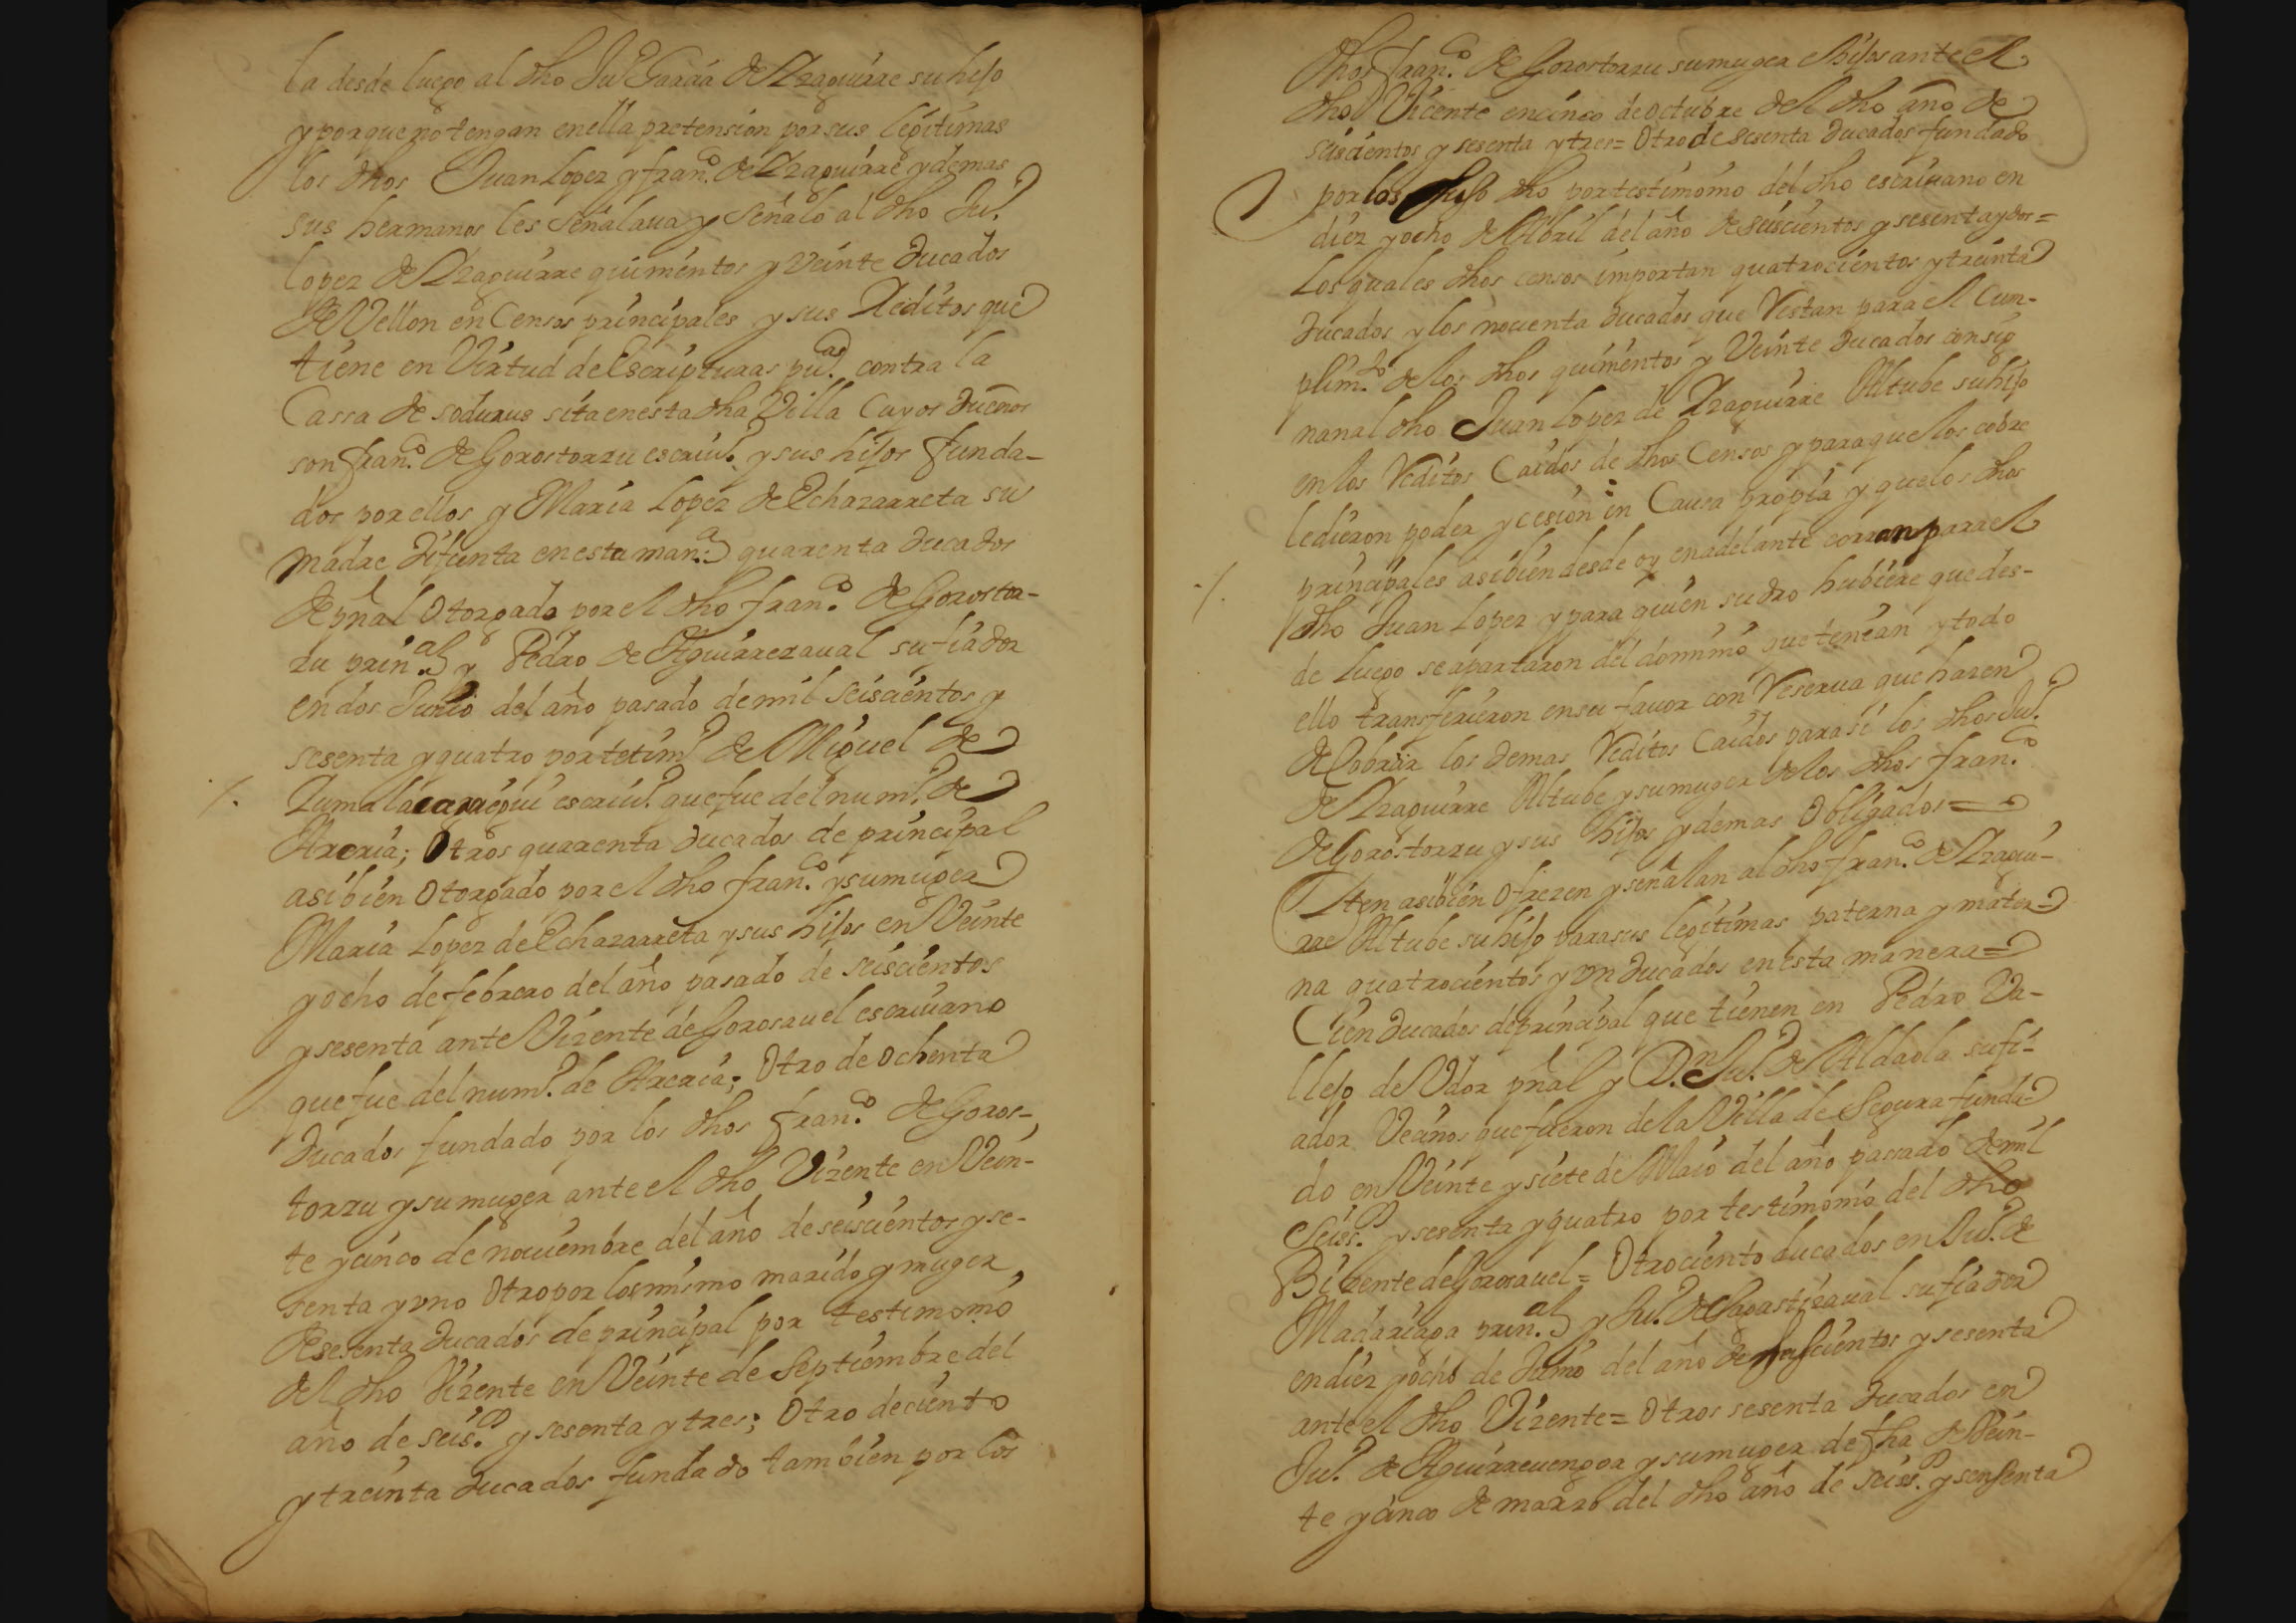 la desde luego al dho Juº Garcia de Yzaguirre su hijo
y porque no tengan en ella pretension por sus legitimas
los dhos Juan Lopez y franco de Yzaguirre y demas
sus hermanos les señalaua y señalo al dho Juº
lopez de Yzaguirre quinientos y veinte ducados
de Vellon en Censos principales y sus Reditos que
tiene en Virtud de Escripturas pucas contra la
Cassa de sita en esta dha Villa Cuyos dueños
son franco de Gorostorzu escriuº y sus hijos funda-
dos por ellos y Maria Lopez de Echazarreta su
madre difunta en esta mana quarenta ducados
de pñal otorgado por el dho franco de Gorostor-
zu prinal y Pedro de Aguirrezaual su fiador
en dos Junio del año pasado de mil seiscientos y
sesenta y quatro por tetimº de Miguel de
Zumalacarregui escriuº que fue del numº de
Areria; Otros quarenta ducados de principal
asibien otorgado por el dho franco y su muger
Maria Lopez de Echazarreta y sus hijos en Veinte
y ocho de febrero del año pasado de seiscientos
y sesenta ante Vizente de Gorosauel escriuano
que fue del numº de Areria; Otro de ochenta
ducados fundado por los dhos franco de Goros-
torzu y su muger ante el dho Vizente en Vein-
te y cinco de nouiembre del año de seiscientos y se-
senta y vno Otro por los mismo marido y muger
de sesenta ducados de principal por testimonio
del dho Vizente en Veinte de septiembre del
año de seisº y sesenta y tres; Otro de ciento
y treinta ducados fundado tambien por los
dhos franco de Gorostorzu su muger e hijos ante el
dho Vicente en cinco de octubre del dho año de
seiscientos y sesenta y tres= Otro de sesenta ducados fundado
por los suso dho por testimonio del dho escriuano en
diez y ocho de Abril del año de seiscientos y sesenta y dos=
Los quales dhos censos importan quatrocientos y treinta
ducados y los nouenta ducados que Restan para el Cun-
plimto de los dhos quinientos y Veinte ducados consig
nan al dho Juan Lopez de Yzaguirre Altube su hijo
en los Reditos Caidos de dhos Censos y para que los cobre
le dieron poder y cesion in Causa propia y que los dhos
principales asibien desde oy en adelante corran para el
dho Juan Lopez y para quien su dro hubiere que des-
de luego se apartaron del dominio que tenian y todo
ello transferieron en su fauor con Reserua que hazen
de Cobrar los demas Reditos Caidos para si los dhos Juº
de Yzaguirre Altube y su muger de los dhos franco
de Gorostorzu y sus hijos y demas Obligados=
Yten asibien ofrezen y señalan al dho franco de Yzagui-
rre Altube su hijo para sus legitimas paterna y mater-
na quatrocientos y vn ducados en esta manera=
Cien ducados de principal que tienen en Pedro Va-
llejo de Vdor pñal y Dn Juº de Aldaola su fi-
ador Vecinos que fueron de la Villa de Segura funda-
do en Veinte y siete de Maio del año passado de mil
seissº y sesenta y quatro por testimonio del dho
Bizente de Gorosauel= Otro ciento ducados en Juº de
Madariaga prinal y Juº de Sagastizaual su fiador
en diez y ocho de Junio del año de seiscientos y sesenta
ante el dho Vizente= Otros sesenta ducados en
Juº de Aguirreuengoa y su muger de fha de Vein-
te y cinco de marzo del dho año de seissº y sensenta